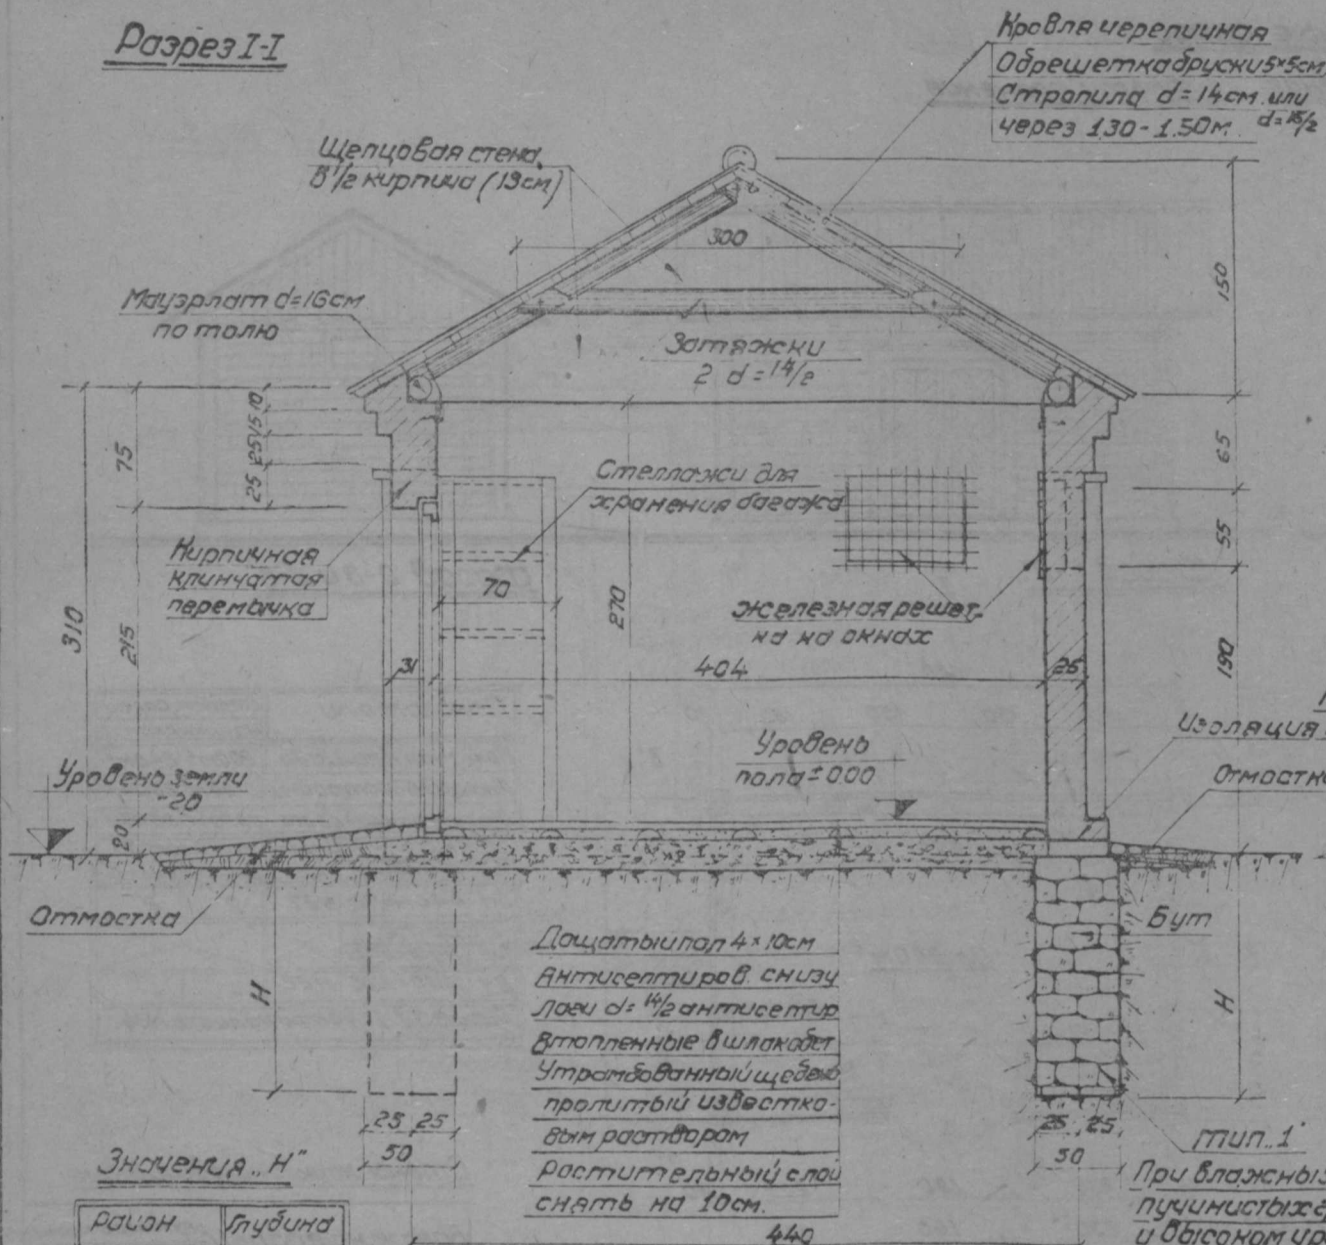 Разрез I-I
Кровля черепичная
Обрешетка бруски 5×5см
Стропила d=14см. или
через 130-1.50м. d=16/2
Щепцовая стена
в 1/2 кирпича (13см)
300
150
Мауэрлат d=16см
по толю
Затяжки
2 d=14/2
75
10
15
25
25
65
Стеллажи для
хранения багажа
55
Кирпичная
клинчатая
перемычка
70
270
железная решет
ка на окнах
310
215
31
404
25
190
Изоляция
Уровень
пола ±000
Уровень земли
-20
Отмостка
20
Отмостка
Бут
Дощатый пол 4×10см
Антисептиров. снизу
Лаги d=14/2 антисептир
втопленные в шлакобет
Утрамбованный щебень
пролитый известко-
вым раствором
Растительный слой
снять на 10см.
H
H
25 25
50
25 25
50
тип „1"
При влажных
пучинистых
и высоком
Значения „H"
Район Глубина
440